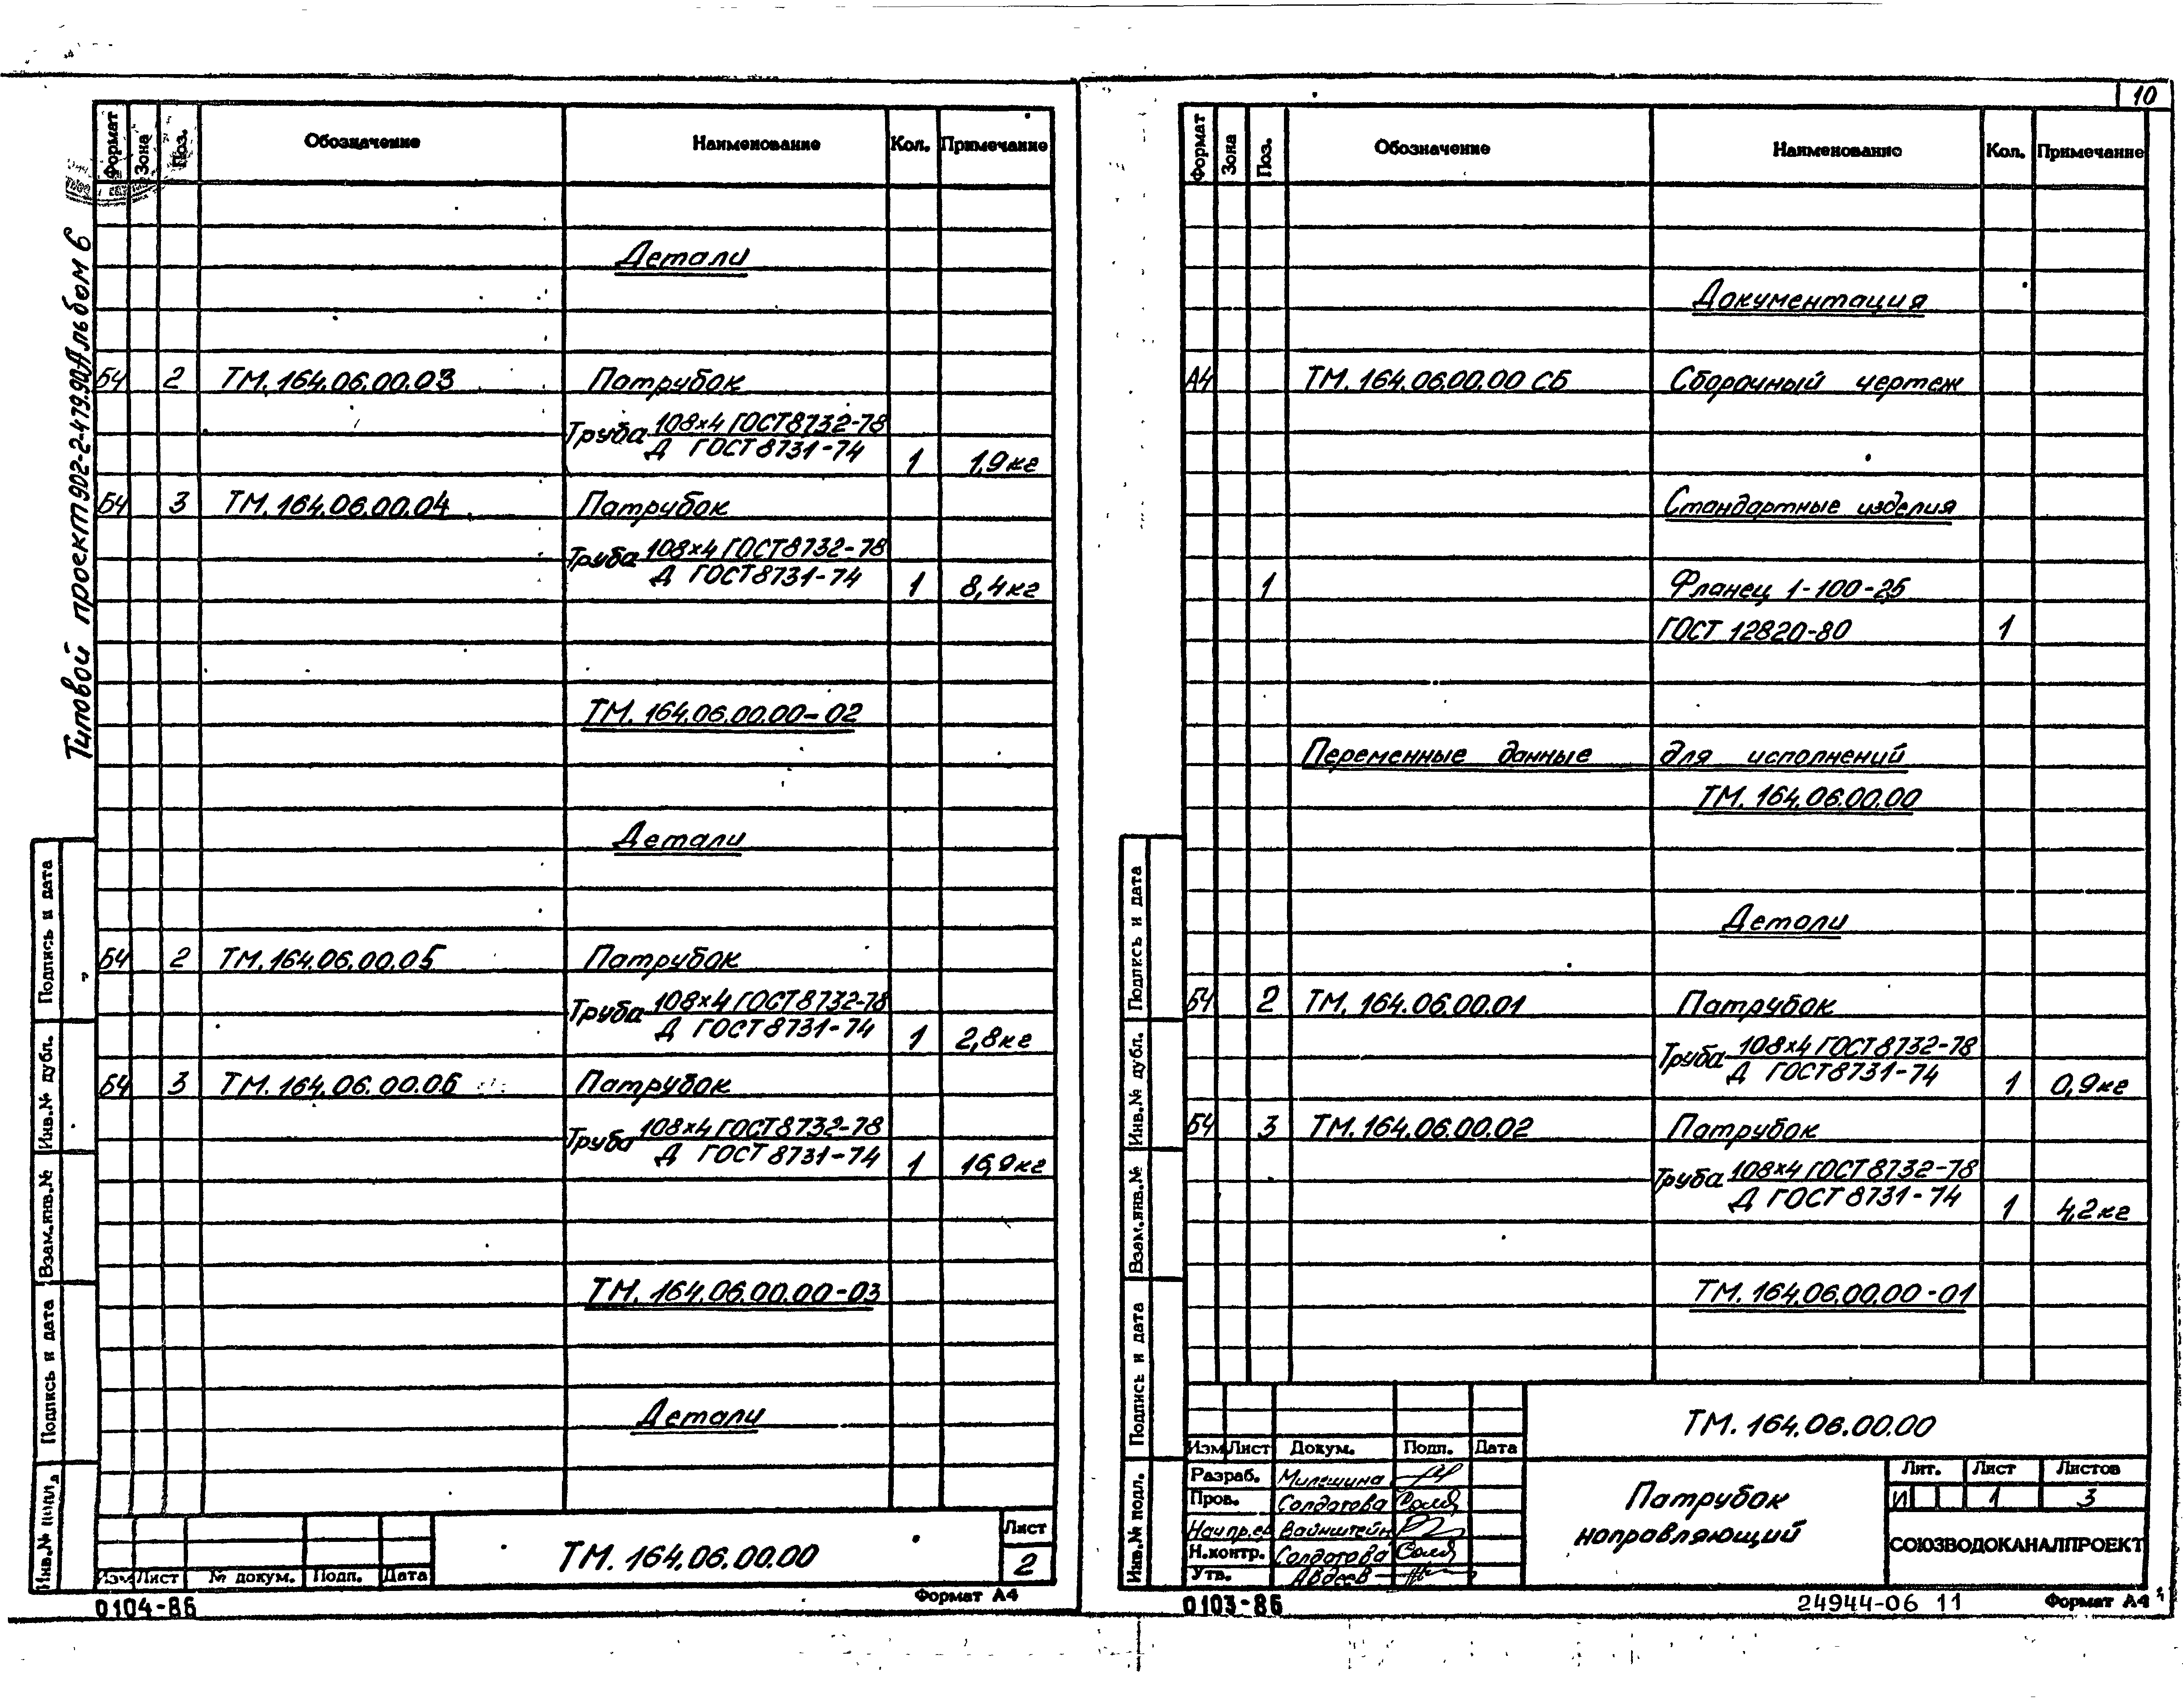 Типовой проект 902-2-479.90 Альбом 6
Формат Зона Поз. Обозначение Наименование Кол. Примечание
Детали
Б4 2 ТМ.164.06.00.03 Патрубок
Труба 108×4 ГОСТ 8732-78
Д ГОСТ 8731-74 1 1,9кг
Б4 3 ТМ.164.06.00.04 Патрубок
Труба 108×4 ГОСТ 8732-78
Д ГОСТ 8731-74 1 8,4кг
ТМ.164.06.00.00-02
Детали
Б4 2 ТМ.164.06.00.05 Патрубок
Труба 108×4 ГОСТ 8732-78
Д ГОСТ 8731-74 1 2,8кг
Б4 3 ТМ.164.06.00.06 Патрубок
Труба 108×4 ГОСТ 8732-78
Д ГОСТ 8731-74 1 16,9кг
ТМ.164.06.00.00-03
Детали
Подпись и дата
Инв.№ дубл.
Взам.инв.№
Подпись и дата
Инв.№ подл.
Изм Лист № докум. Подп. Дата
ТМ.164.06.00.00
Лист
2
0104-86
Формат А4
10
Формат Зона Поз. Обозначение Наименование Кол. Примечание
Документация
А4 ТМ.164.06.00.00 СБ Сборочный чертеж
Стандартные изделия
1 Фланец 1-100-2,5
ГОСТ 12820-80 1
Переменные данные для исполнений
ТМ.164.06.00.00
Детали
Б4 2 ТМ.164.06.00.01 Патрубок
Труба 108×4 ГОСТ 8732-78
Д ГОСТ 8731-74 1 0,9кг
Б4 3 ТМ.164.06.00.02 Патрубок
Труба 108×4 ГОСТ 8732-78
Д ГОСТ 8731-74 1 4,2кг
ТМ.164.06.00.00-01
Подпись и дата
Инв.№ дубл.
Взам.инв.№
Подпись и дата
Инв.№ подл.
ТМ.164.06.00.00
Изм Лист Докум. Подп. Дата
Разраб. Милешина
Пров. Солдатова
Нач.пр. Вайнштейн
Н.контр. Солдатова
Утв. Авдеев
Патрубок
направляющий
Лит. Лист Листов
И 1 3
СОЮЗВОДОКАНАЛПРОЕКТ
0103-86
24944-06 11
Формат А4